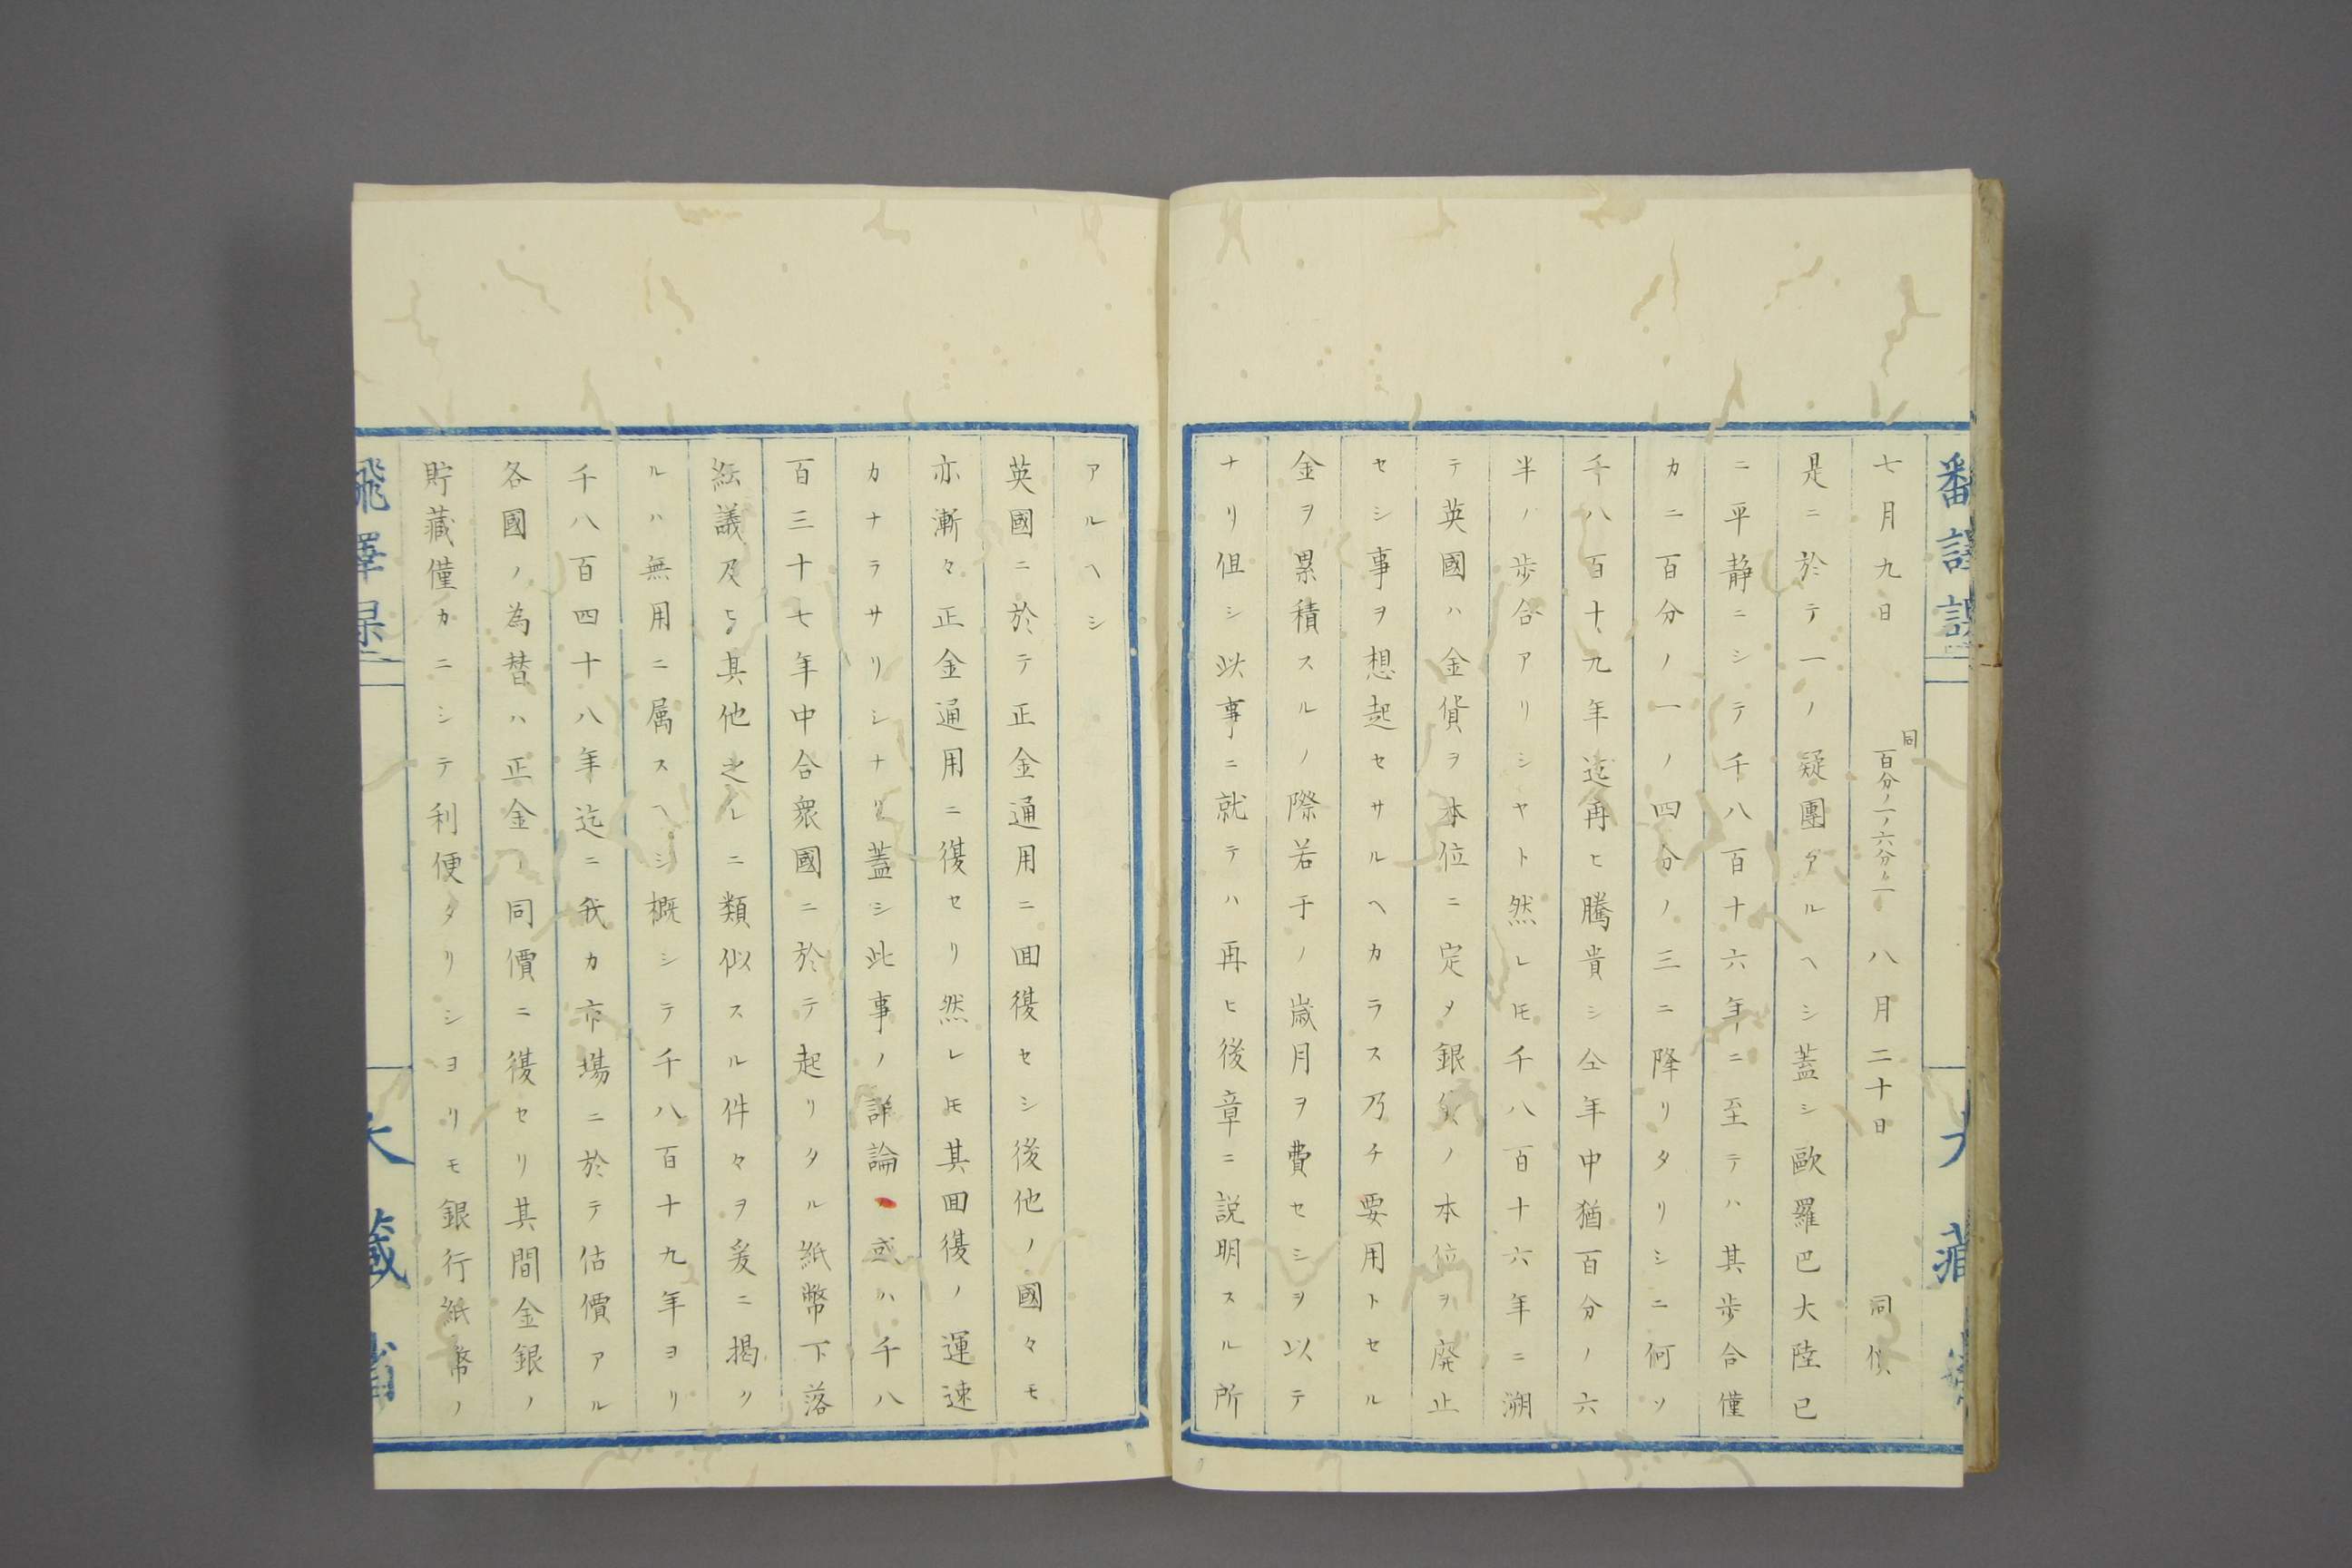 七月九日 同百分ノ一ノ六分ノ一 八月二十日 同價
是ニ於テ一ノ疑團アルヘシ蓋シ歐羅巴大陸已
ニ平静ニシテ千八百十六年ニ至テハ其歩合僅
カニ百分ノ一ノ四分ノ三ニ降リタリシニ何ソ
千八百十九年迄再ヒ騰貴シ仝年中猶百分ノ六
半ノ歩合アリシヤト然レ𪜈千八百十六年ニ溯
テ英國ハ金貨ヲ本位ニ定メ銀貨ノ本位ヲ廃止
セシ事ヲ想起セサルヘカラス乃チ要用トセル
金ヲ累積スルノ際若于ノ歳月ヲ費セシヲ以テ
ナリ但シ此事ニ就テハ再ヒ後章ニ説明スル所
アルヘシ
英國ニ於テ正金通用ニ囬復セシ後他ノ國々モ
亦漸々正金通用ニ復セリ然レ𪜈其囬復ノ運速
カナラサリシナリ蓋シ此事ノ詳論、或ハ千八
百三十七年中合衆國ニ於テ起リタル紙幣下落
紜議及ヒ其他之レニ類似スル件々ヲ爰ニ掲ク
ルハ無用ニ属スヘシ概シテ千八百十九年ヨリ
千八百四十八年迄ニ我カ市場ニ於テ估價アル
各國ノ為替ハ正金ノ同價ニ復セリ其間金銀ノ
貯藏僅カニシテ利便タリシヨリモ銀行紙幣ノ
飛譯録
大藏省